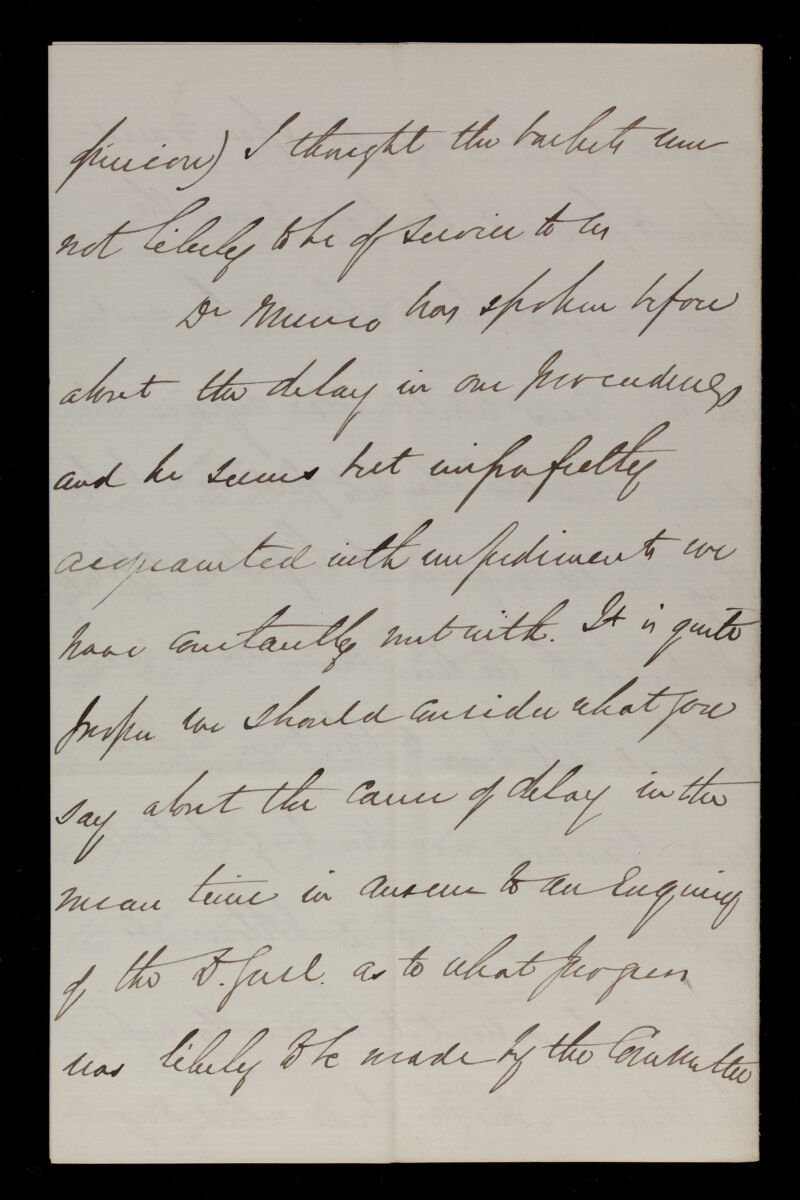 opinion) I thought the baskets were
not likely to be of service to us
Dr Munro has spoken before
about the delay in our proceedings
and he seems but imperfectly
acquainted with impediments we
have constantly met with. It is quite
proper we should consider what you
say about the cause of delay in the
mean time in answer to an Enquiry
of the D. Genl. as to what progress
was likely to be made by the Committee